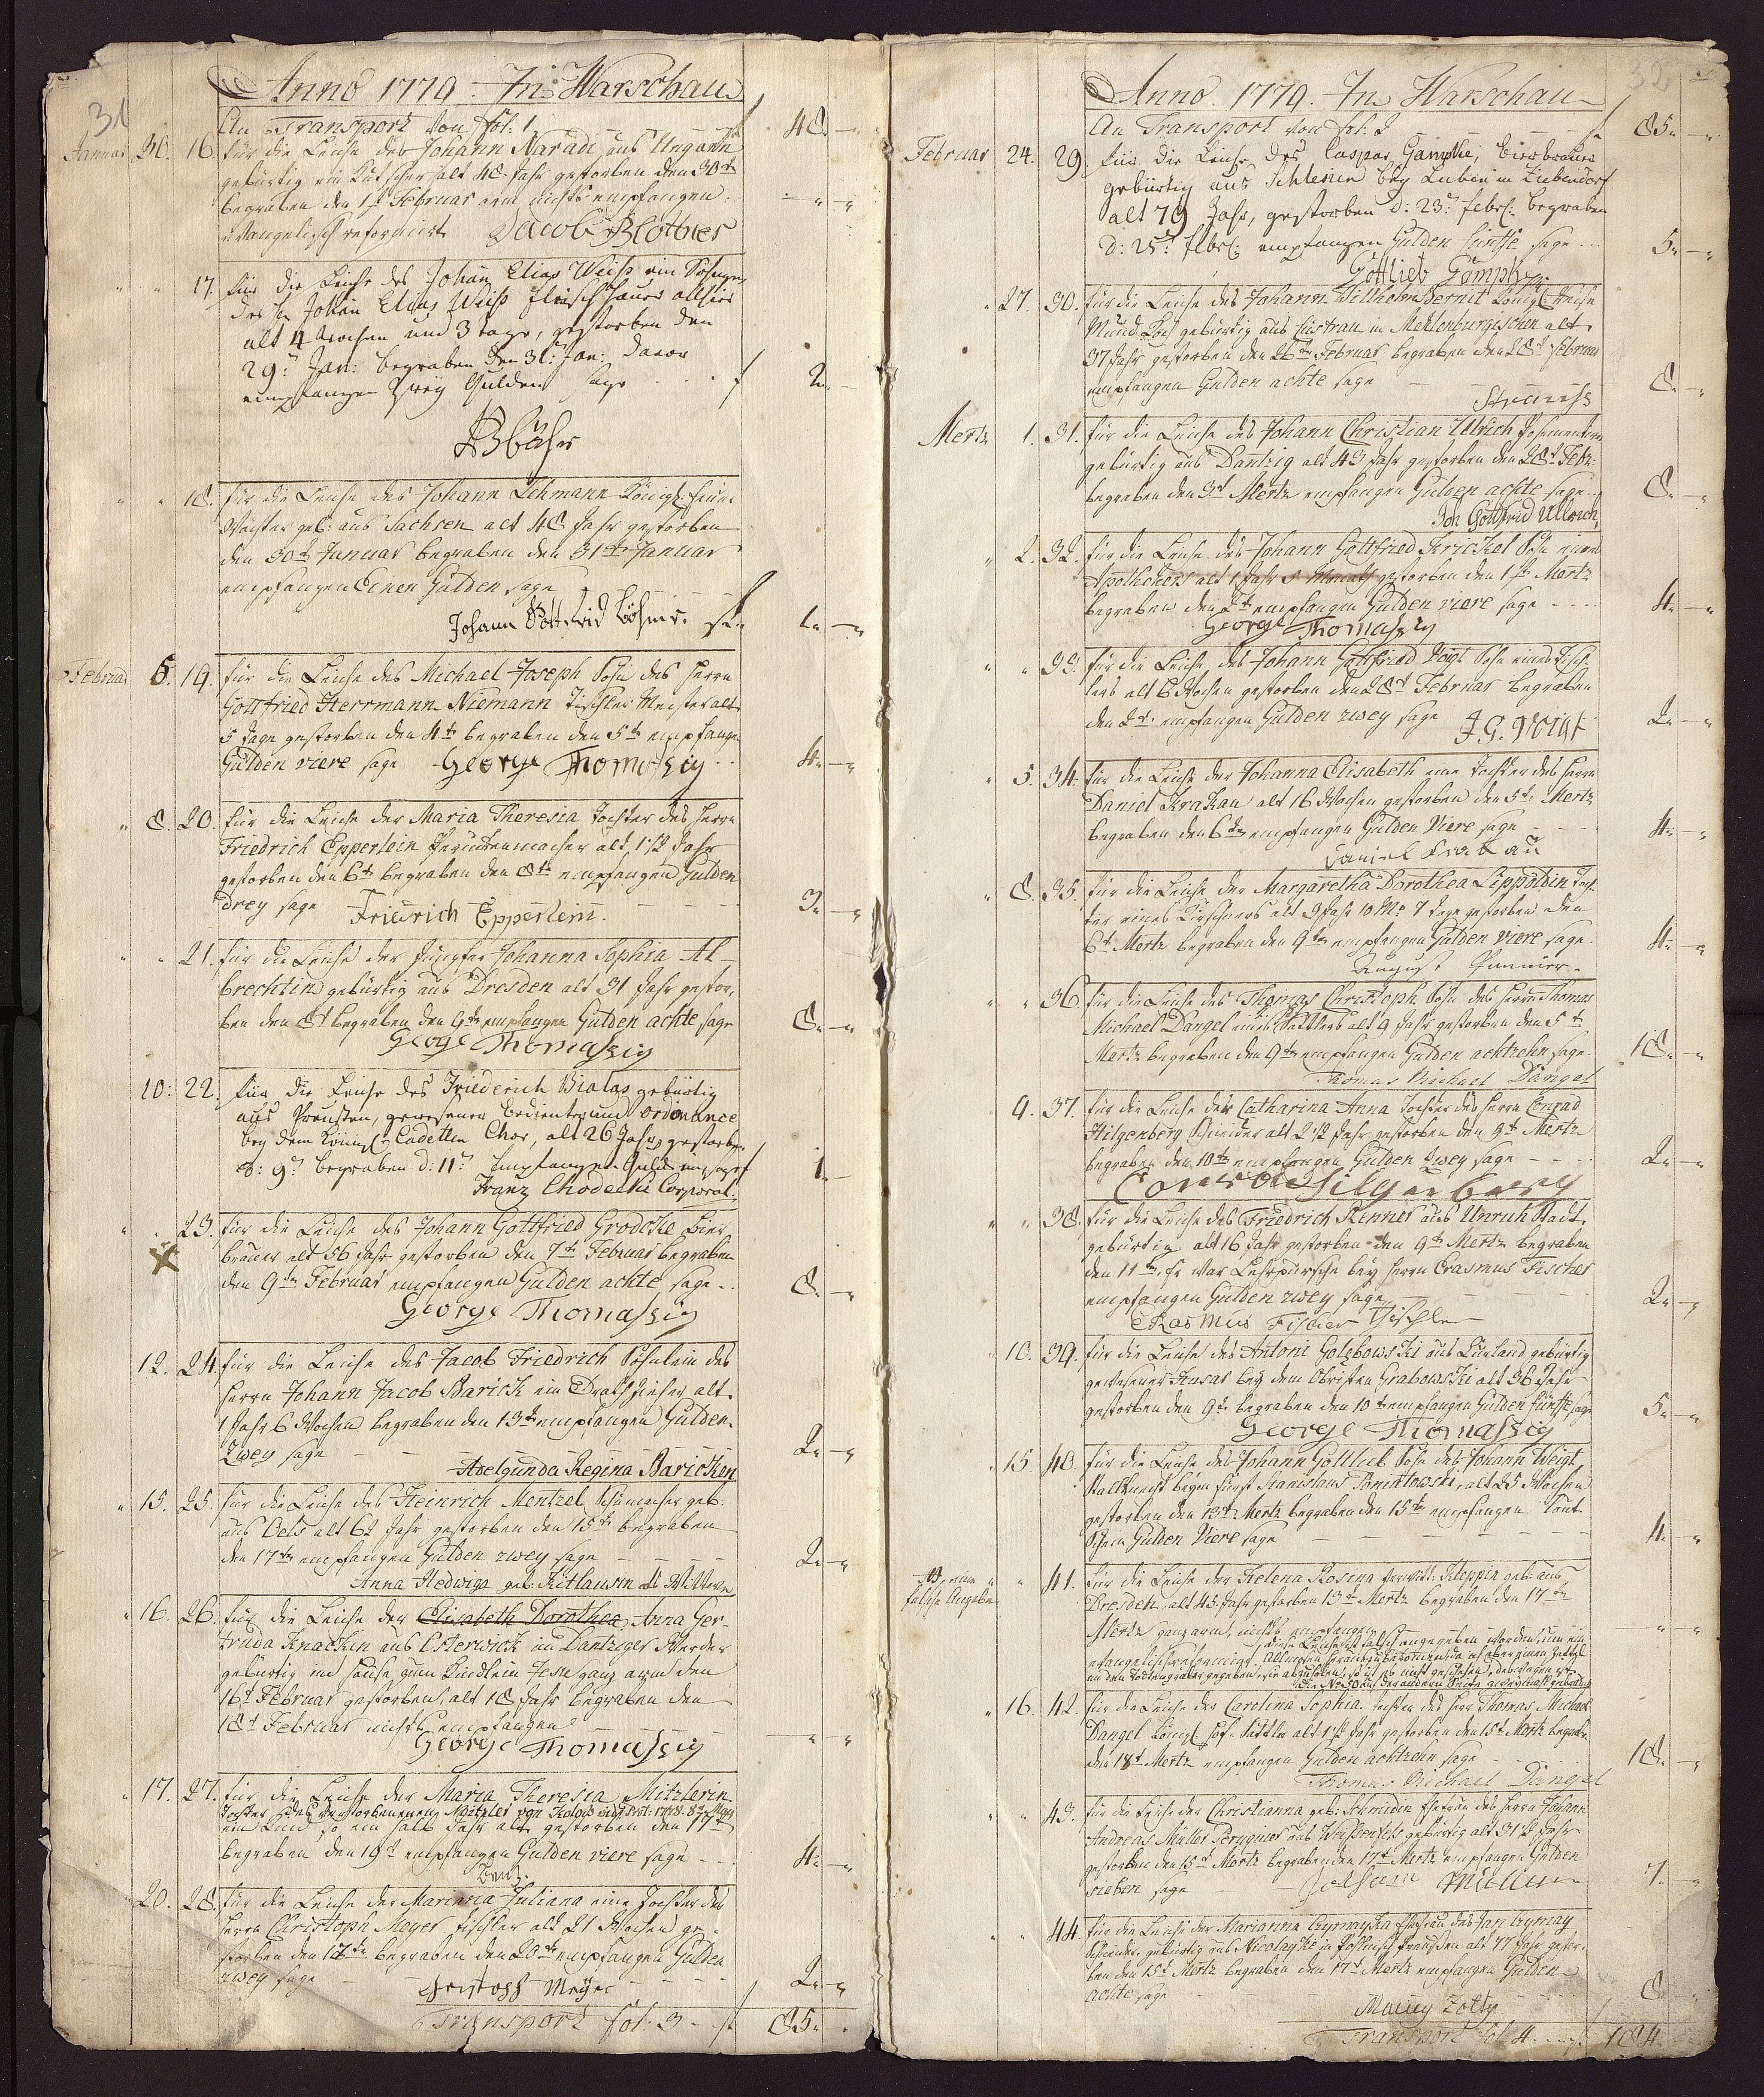 31
Anno 1779. In Warschau
An Transport von fol: 1. f 48.
Januar 30. 16. für die Leiche des Johann Naradi aus Ungarn
gebürtig ein Kutscher alt 48 Jahr gestorben den 30ten
begraben den 1t Februar arm nichts empfangen.
evangelisch reformirt Jacob Blottner
17. für die Leiche des Johan Elias Weiss ein Söhngen
des H. Johan Elias Weiss Fleischhauer allhier
alt 4 Wochen und 3 tage, gestorben den
29: Jan: begraben den 31: Jan: davor
empfangen Zwey Gulden sage f 2.
18. für die Leiche des Johann Lehmann Königl:
Wächter geb: aus Sachsen alt 48 Jahr gestorben
den 30t Januar begraben den 31ten Januar
empfangen Einen Gulden sage
Johann Gottfried Böhme f 1.
Februar 5. 19. für die Leiche des Michael Joseph Sohn des Herrn
Gottfried Herrmann Niemann Tischler Meister alt
5 Tage gestorben den 4t begraben den 5t empfangen
Gulden viere sage George Thomaszig 4.
8. 20. für die Leiche der Maria Theresia Tochter des Herrn
Friedrich Epperlein Peruckenmacher alt 1 1/2 Jahr
gestorben den 6t begraben den 8ten empfangen Gulden
drey sage Friedrich Epperlein. 3.
21. für die Leiche der Jungfer Johanna Sophia Al-
brechtin gebürtig aus Dresden alt 31 Jahr gestor-
ben den 8t begraben den 9ten empfangen Gulden achte sage 8.
George Thomaszig
10. 22. für die Leiche des Friederich Bialas gebürtig
aus Preussen, gewesener Bedienter und ordonance
bey dem Königl: Cadetten Chor, alt 26 Jahr gestorben
d: 9: begraben d: 11: Empfangen Gulden 1.
Franz Chodecki Corporal.
23. für die Leiche des Johann Gottfried Grodcke Bier
brauer alt 56 Jahr gestorben den 7ten Februar begraben
den 9ten Februar empfangen Gulden achte sage 8.
George Thomaszig
12. 24. für die Leiche des Jacob Friedrich Söhnlein des
Herrn Johann Jacob Barick ein Drathzieher, alt
1 Jahr 6 Wochen begraben den 13ten empfangen Gulden
Zwey sage 2.
Adelgunda Regina Baricken
15. 25. für die Leiche des Heinrich Mentzel Schumacher geb:
aus Oels alt 62 Jahr gestorben den 15ten begraben
den 17ten empfangen Gulden zwey sage 2.
Anna Hedwiga geb: als Wittwe
16. 26. für die Leiche der Elisabeth Dorothea Anna Ger-
truda Knackin aus Osterwick im Dantziger Werder
gebürtig im Hause zum Kindlein Jesu ganz arm den
16t Februar gestorben, alt 18 Jahr begraben den
18t Februar nichts empfangen
George Thomaszig
17. 27. für die Leiche der Maria Theresia Mitzlerin
Tochter des verstorbenen Mitzler von Koloss
ein Kind, so ein halb Jahr alt gestorben den 17t
begraben den 19t empfangen Gulden viere sage 4.
20. 28. für die Leiche der Marianna Juliana eine Tochter des
Herrn Christoph Meyer Tischler alt 21 Wochen ge-
storben den 17ten begraben den 20ten empfangen Gulden
zwey sage 2.
Christoph Meyer
Transport fol: 3. f 85.
32
Anno 1779. In Warschau
An Transport von fol: 2 f 85.
Februar 24. 29. für die Leiche des Caspar Gampke, Bierbrauer
gebürtig aus Schlesien bey Luben in Ziebendorf
alt 79 Jahr, gestorben d: 23: febr: begraben
d: 25: febr: empfangen Gulden fünffe sage 5.
Gottlieb
27. 30. für die Leiche des Johann Willhelm Bernit Königl:
Mund Koch gebürtig aus Güstrau in Meklenburgischen alt
37 Jahr gestorben den 26ten Februar begraben den 28t Februar
empfangen Gulden achte sage 8.
Strauss
Mertz 1. 31. für die Leiche des Johann Christian Ullrich Posementirer
gebürtig aus Dantzig alt 43 Jahr gestorben den 28t Febr:
begraben den 3t Mertz empfangen Gulden achte sage 8.
Joh Gottfrid Ullrich
2. 32. für die Leiche des Johann Gottfried Krickel Sohn eines
Apothekers alt 1 Jahr gestorben den 1ten Mertz
begraben den 2t empfangen Gulden viere sage 4.
George Thomaszig
33. für die Leiche des Johann Gottfried Voigt Sohn eines Tisch-
lers alt 6 Wochen gestorben den 28t Februar begraben
den 2t empfangen Gulden zwey sage J. G. Voigt 2.
5. 34. für die Leiche der Johanna Elisabeth eine Tochter des Herrn
Daniel Krakau alt 16 Wochen gestorben den 5t Mertz
begraben den 6ten empfangen Gulden Viere sage 4.
Daniel Krakau
8. 35. für die Leiche der Margaretha Dorothea Lippoldin Toch-
ter eines Kirschners alt 3 Jahr 10 Mo 7 Tage gestorben den
6t Mertz begraben den 9ten empfangen Gulden viere sage 4.
August
36. für die Leiche des Thomas Christoph Sohn des Herrn Thomas
Michael Dangel eines Sattlers alt 9 Jahr gestorben den 5t
Mertz begraben den 9ten empfangen Gulden achtzehn sage 18.
Thomas Michael Dangel
9. 37. für die Leiche der Catharina Anna Tochter des Herrn Conrad
Hilgenberg Schneider alt 2 1/2 Jahr gestorben den 9t Mertz
begraben den 10ten empfangen Gulden zwey sage 2.
Conrad Hilgenberg
38. für die Leiche des Friedrich Renner aus Unruh Stadt
gebürtig alt 16 Jahr gestorben den 9ten Mertz begraben
den 11ten, Er war Lehrpursche bey Herrn Erasmus Fischer
empfangen Gulden zwey sage 2.
Erasmus Fischer Tischler
10. 39. für die Leiche des Antoni Golebowski aus Kurland gebürtig
gewesener Husar bey dem Obristen Grabowski alt 36 Jahr
gestorben den 9t begraben den 10ten empfangen Gulden fünffe sage 5.
George Thomaszig
15. 40. für die Leiche des Johann Gottlieb Sohn des Johann Weigt
Stallknecht beym Fürst Stanislaus Poniatowski, alt 25 Wochen
gestorben den 13t Mertz begraben den 15ten empfangen laut
Schein Gulden Viere sage 4.
NB eine
falsche Angabe
41. für die Leiche der Helena Rosina verwitt: Kloppin geb: aus
Dresden, alt 45 Jahr gestorben 13t Mertz begraben den 17ten
Mertz ganz arm, nichts empfangen
evangelisch reformirt. diese Leiche ist falsch angegeben worden, um ein
Allmosen
an den Todtengräber gegeben,
16. 42. für die Leiche der Carolina Sophia Tochter des Herr Thomas Michael
Dangel Königl Hof-Sattler alt 1 1/2 Jahr gestorben den 15t Mertz begraben
den 18t Mertz empfangen Gulden achtzehn sage 18.
Thomas Michael Dangel
43. für die Leiche der Christianna geb: Schmiden Ehefrau des Herrn Johann
Andreas Müller aus Weissenfels gebürtig alt 31 1/2 Jahr
gestorben den 15t Mertz begraben den 17t Mertz empfangen Gulden
sieben sage Johann Müller 7.
44. für die Leiche der Marianna Czymayka Ehefrau des Jan Czymay
Schneider, gebürtig aus Nicolayke in Polnisch Preussen alt 77 Jahr gestor-
ben den 15t Mertz begraben den 17t Mertz empfangen Gulden
achte sage 8
Maciey Zolty
Transport fol 4. f 184.